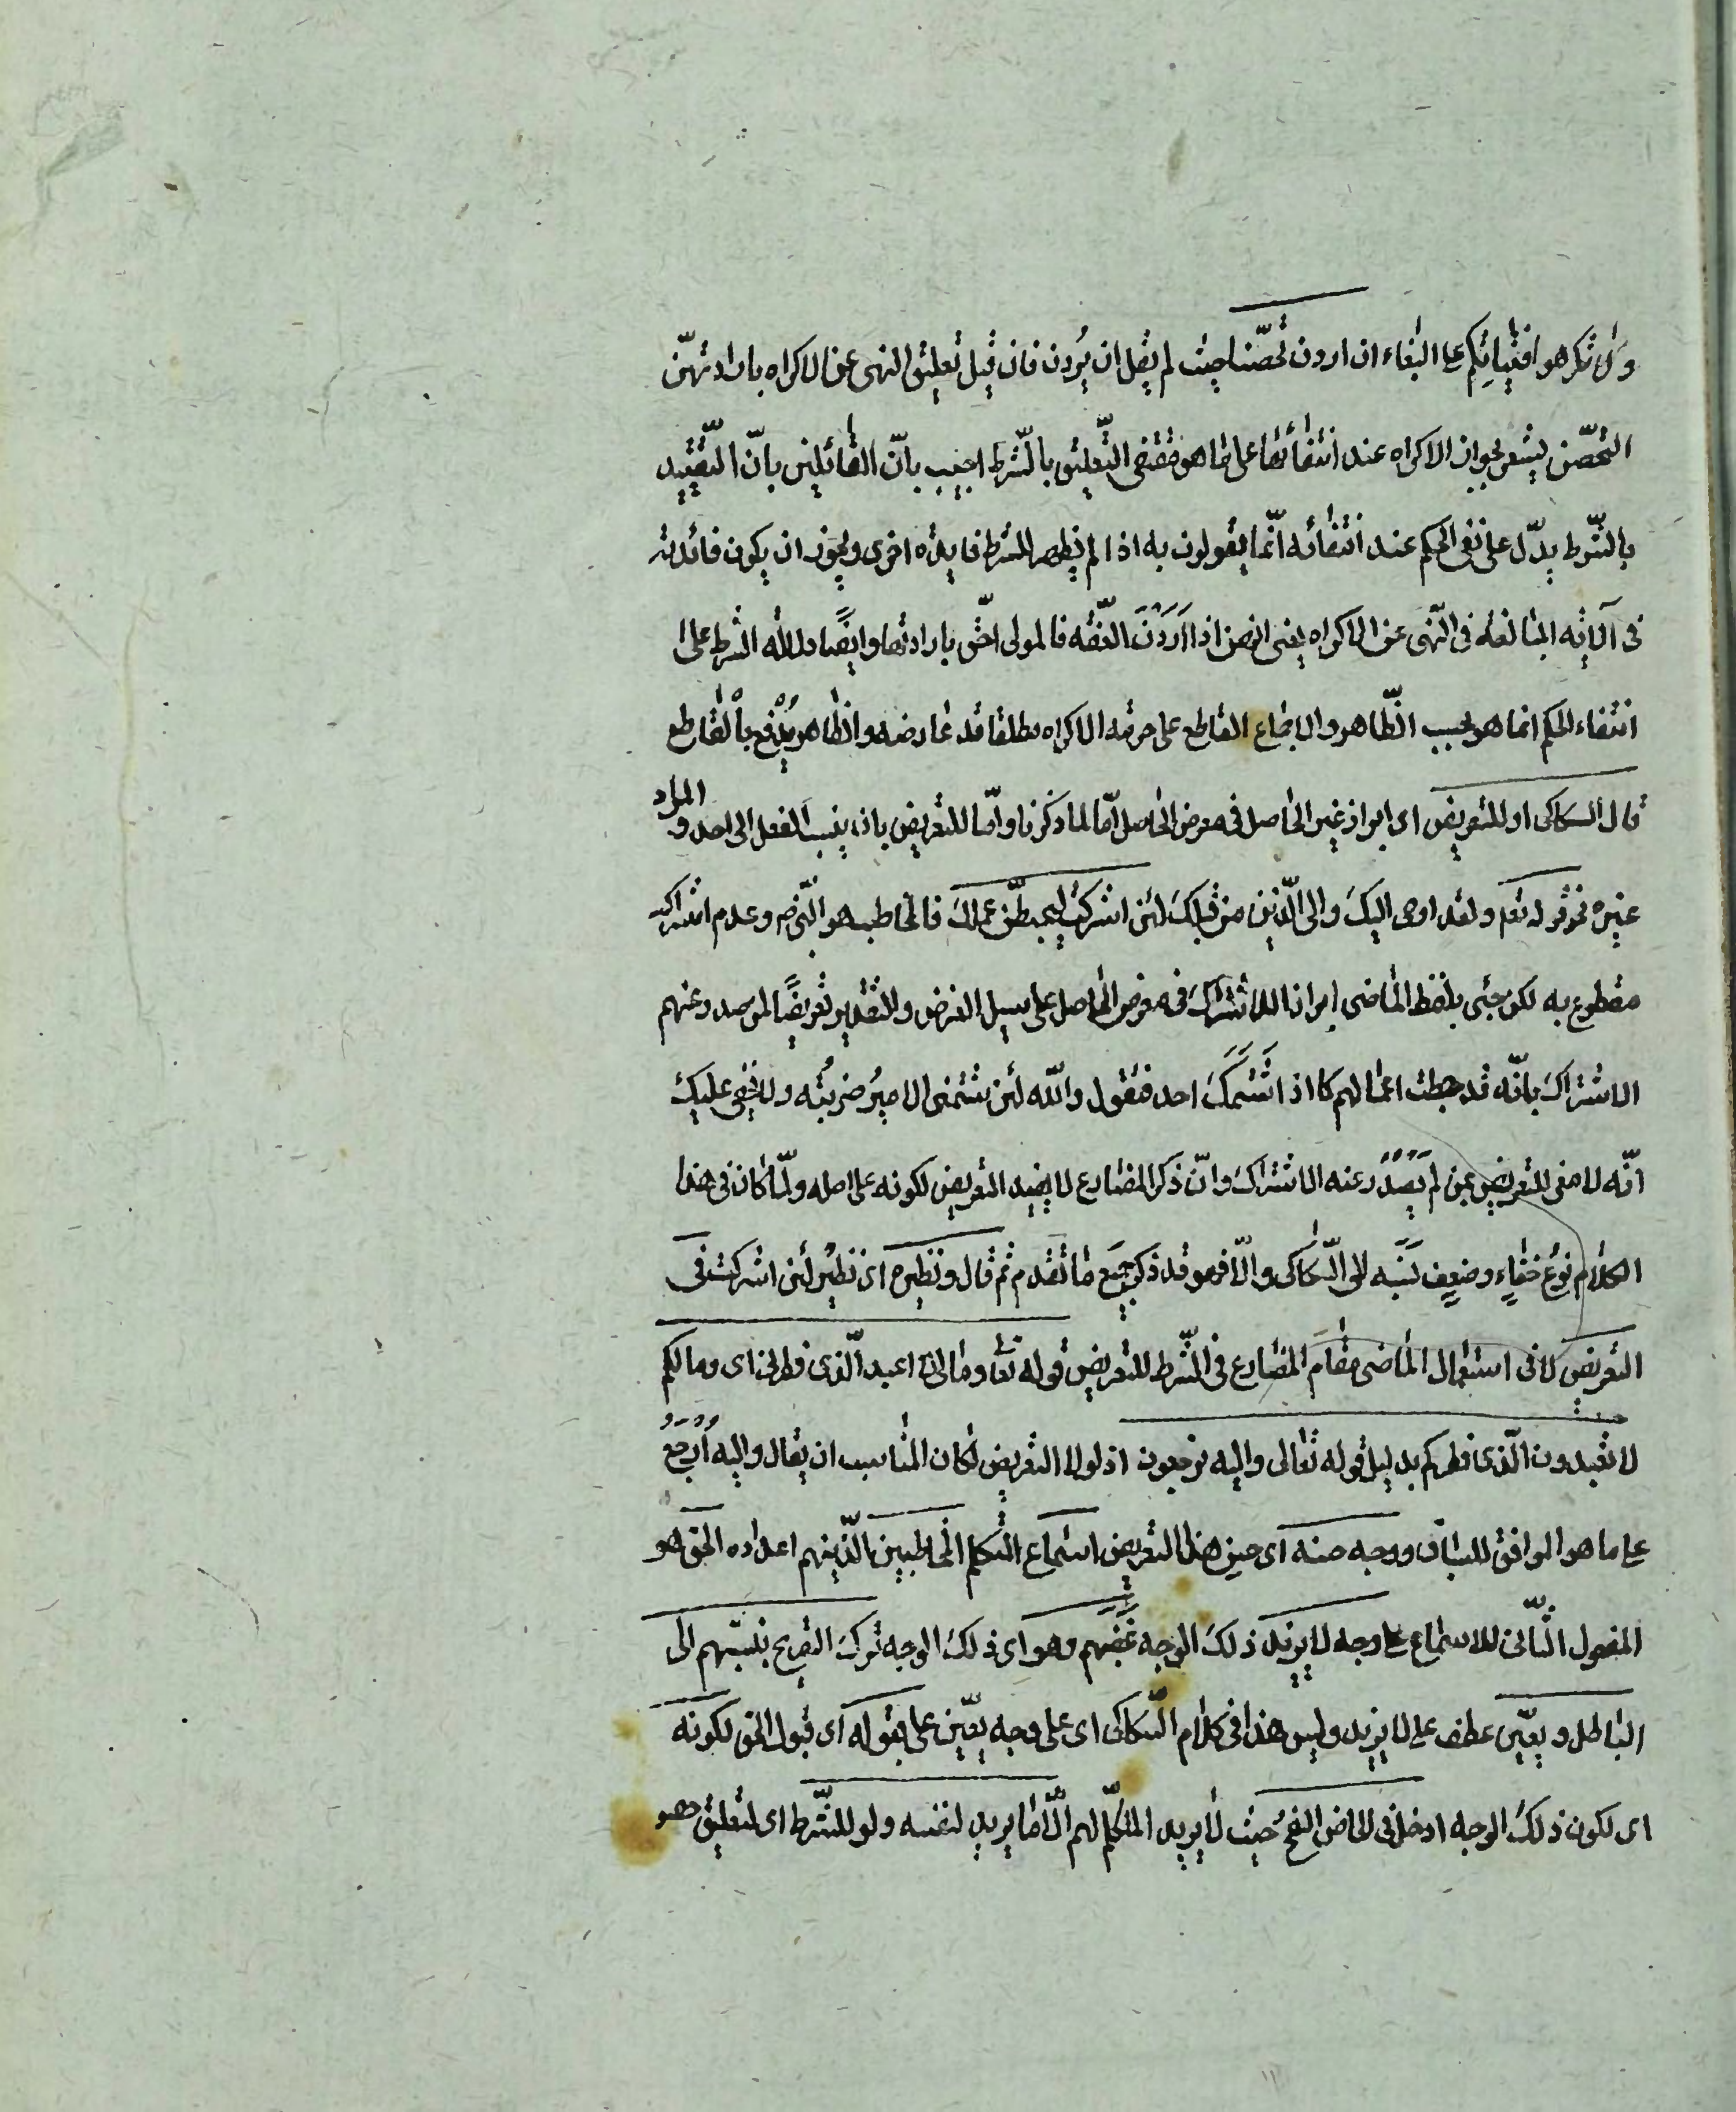 ولا تكرهوا فتياتكم على البغاء ان اردن تحصّنا حيث لم يقل ان يُردن فان قيل تعليق النهى عن الاكراه بارادتهنّ
التحصّن يشعر بجواز الاكراه عند انتفائها على ما هو مقتضى التّعليق بالشّرط اجيب بانّ القائلين بانّ التّقييد
بالشّرط يدّل على نفى الحكم عند انتفائه انّما يقولون به اذا لم يظهر للشرط فايده اخرى ويجوز ان يكون فائدته
فى آلايه المبالغه فى النّهى عن الاكراه يعنى انهن اذا اَرَدْنَ العّفه فالمولى احّق بارادتها وايضًا دلاله الشرط على
انتفاء الحكم انما هو بحسب الظّاهر والاجماع القاطع على حرمه الاكراه مطلقا قد عارضه والظاهر يُدْفع بالقاطع
قال السكاكى او للتعريض اى ابراز غير الحاصل فى معرض الحاصل امّا لما ذكرنا وامّا للتعريض بان ينسب الفعل الى احد والمراد
غيره نحو قوله تعه ولقد اوحى اليكَ والى الّذين من قبلكَ لئن اشركتَ ليحبطّن عملكَ فالمخاطب هو النّبى ص وعدم اشراكه
مقطوع به لكن جئى بلفظ الماضى ابرازا للاشتراكَ فى معرض الحاصل على سبيل الفرض والتقدير تعريضًا لمن صدر عنهم
الاشتراكَ بانّه قد حبطت اعمالهم كما اذا شَتَمَكَ احد فتقول والله لئن شتمنى الامير ضربتُه ولا يخفى عليك
انّه لا معنى للتعريض بمن لم يَصْدُر عنه الاشتراكَ وانّ ذكر المضارع لا يفيد التعريض لكونه على اصله ولمّا كان فى هذا
الكلام نوع خفاء وضعف نَسَبَه الى السّكاكى والّا فهو قد ذكر جميع ما تقدم ثم قال ونظيره اى نظير لئن اشركت فى
التعريض لا فى استعمال الماضى مقام المضارع فى الشّرط للتعريض قوله تعا وما لى لا اعبد الّذى فطرنى اى وما لكم
لا تعبدون الّذى فطركم بدليل قوله تعالى واليه ترجعون اذ لولا التعريض لكان المناسب ان يقال واليه اُرجع
على ما هو الموافق للسياق ووجه حسنه اى حسن هذا التعريض اسماع المتكلم المخاطبين الّذين هم اعداده الحق هو
المفعول الثّانى للاسماع على وجه لا يزيد ذلكَ الوجه غَضَبَهم وهو اى ذلكَ الوجه تركَ التصريح بنسبتهم الى
الباطل ويعيّن عطف على لا يزيد وليس هذا فى كلام السّكاكى اى على وجه يعّين على قبوله اى قبول الحق لكونه
اى لكون ذلكَ الوجه ادخل فى امحاض النصح حيث لا يريد المتكلّم لهم الّا ما يريد لنفسه ولو للشّرط اى لتعليق حصو